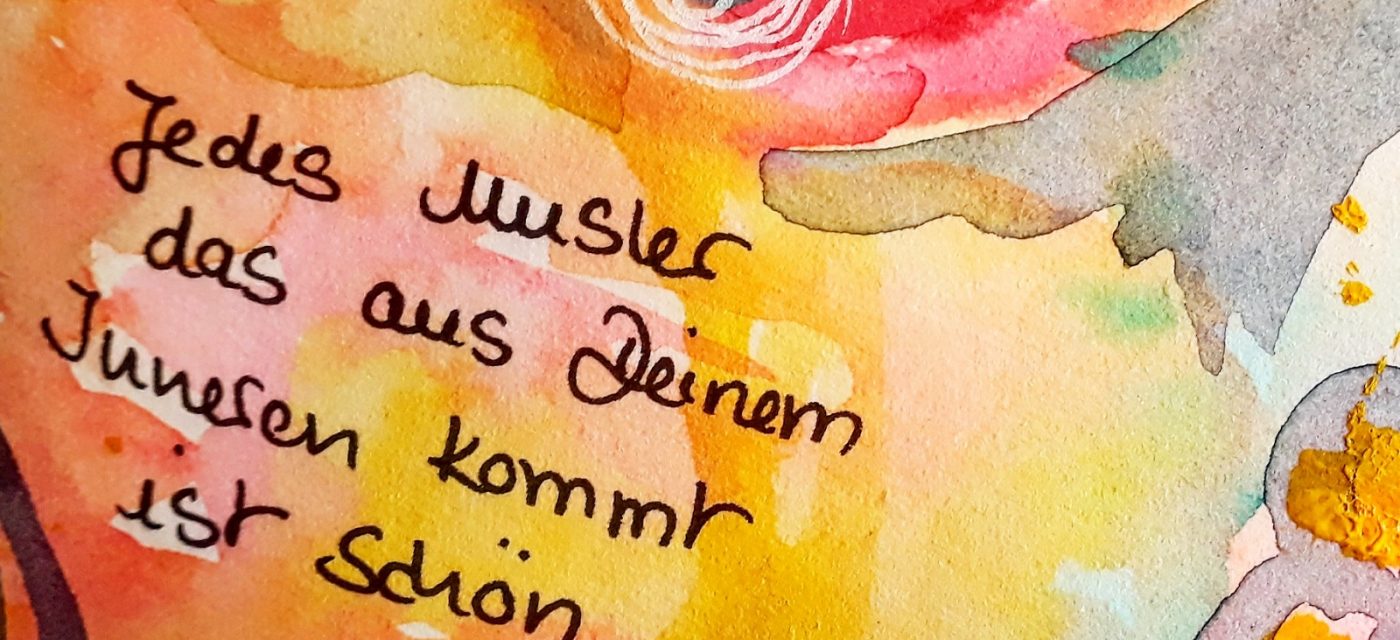 Jedes Muster
das aus Deinem
Inneren kommt
ist schön